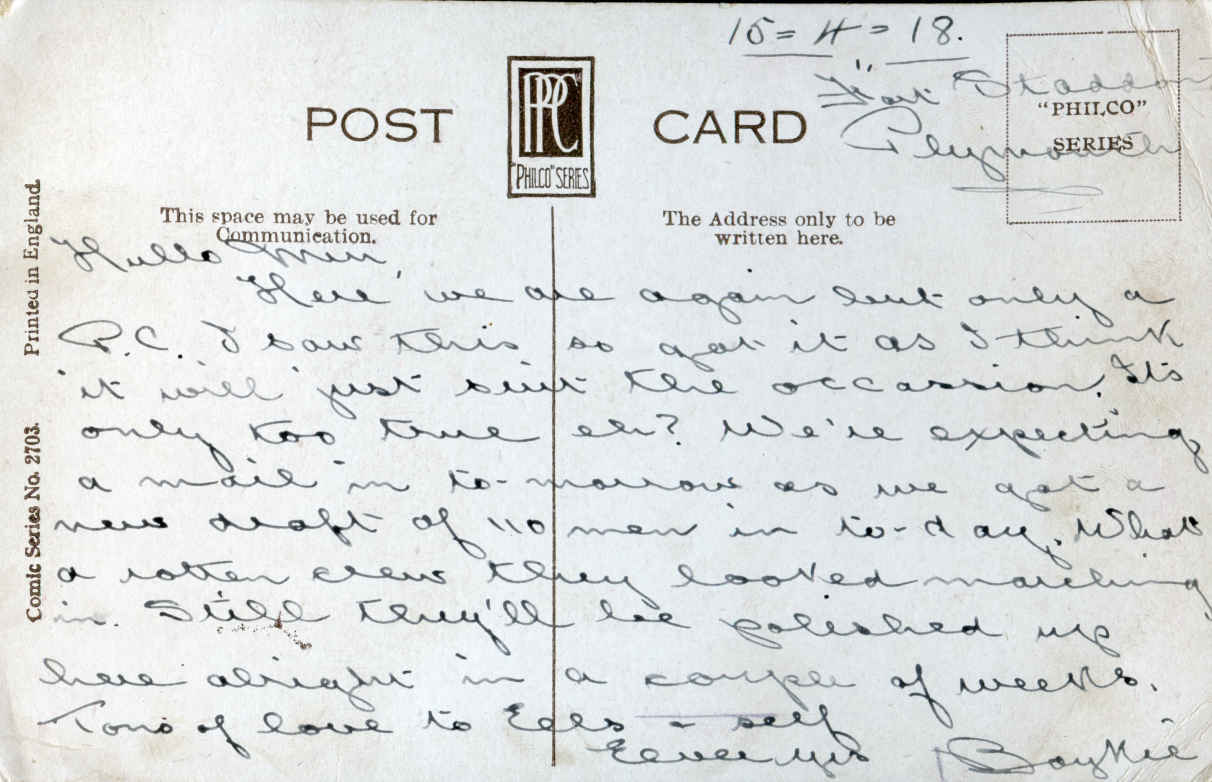 15 = 4 = 18.
Fort Staddon
Plymouth
POST CARD
PPC
"PHILCO" SERIES
"PHILCO"
SERIES
This space may be used for
Communication.
The Address only to be
written here.
Printed in England.
Comic Series No. 2703.
Hullo Min,
Here we are again but only a
P.C. I saw this so got it as I think
it will just suit the occassion. It's
only too true eh? We're expecting
a mail in to-morrow as we got a
new draft of 110 men in to-day. What
a rotten crew they looked marching
in. Still they'll be polished up
here alright in a couple of weeks.
Tons of love to Eels & self
Ever yrs Boykie